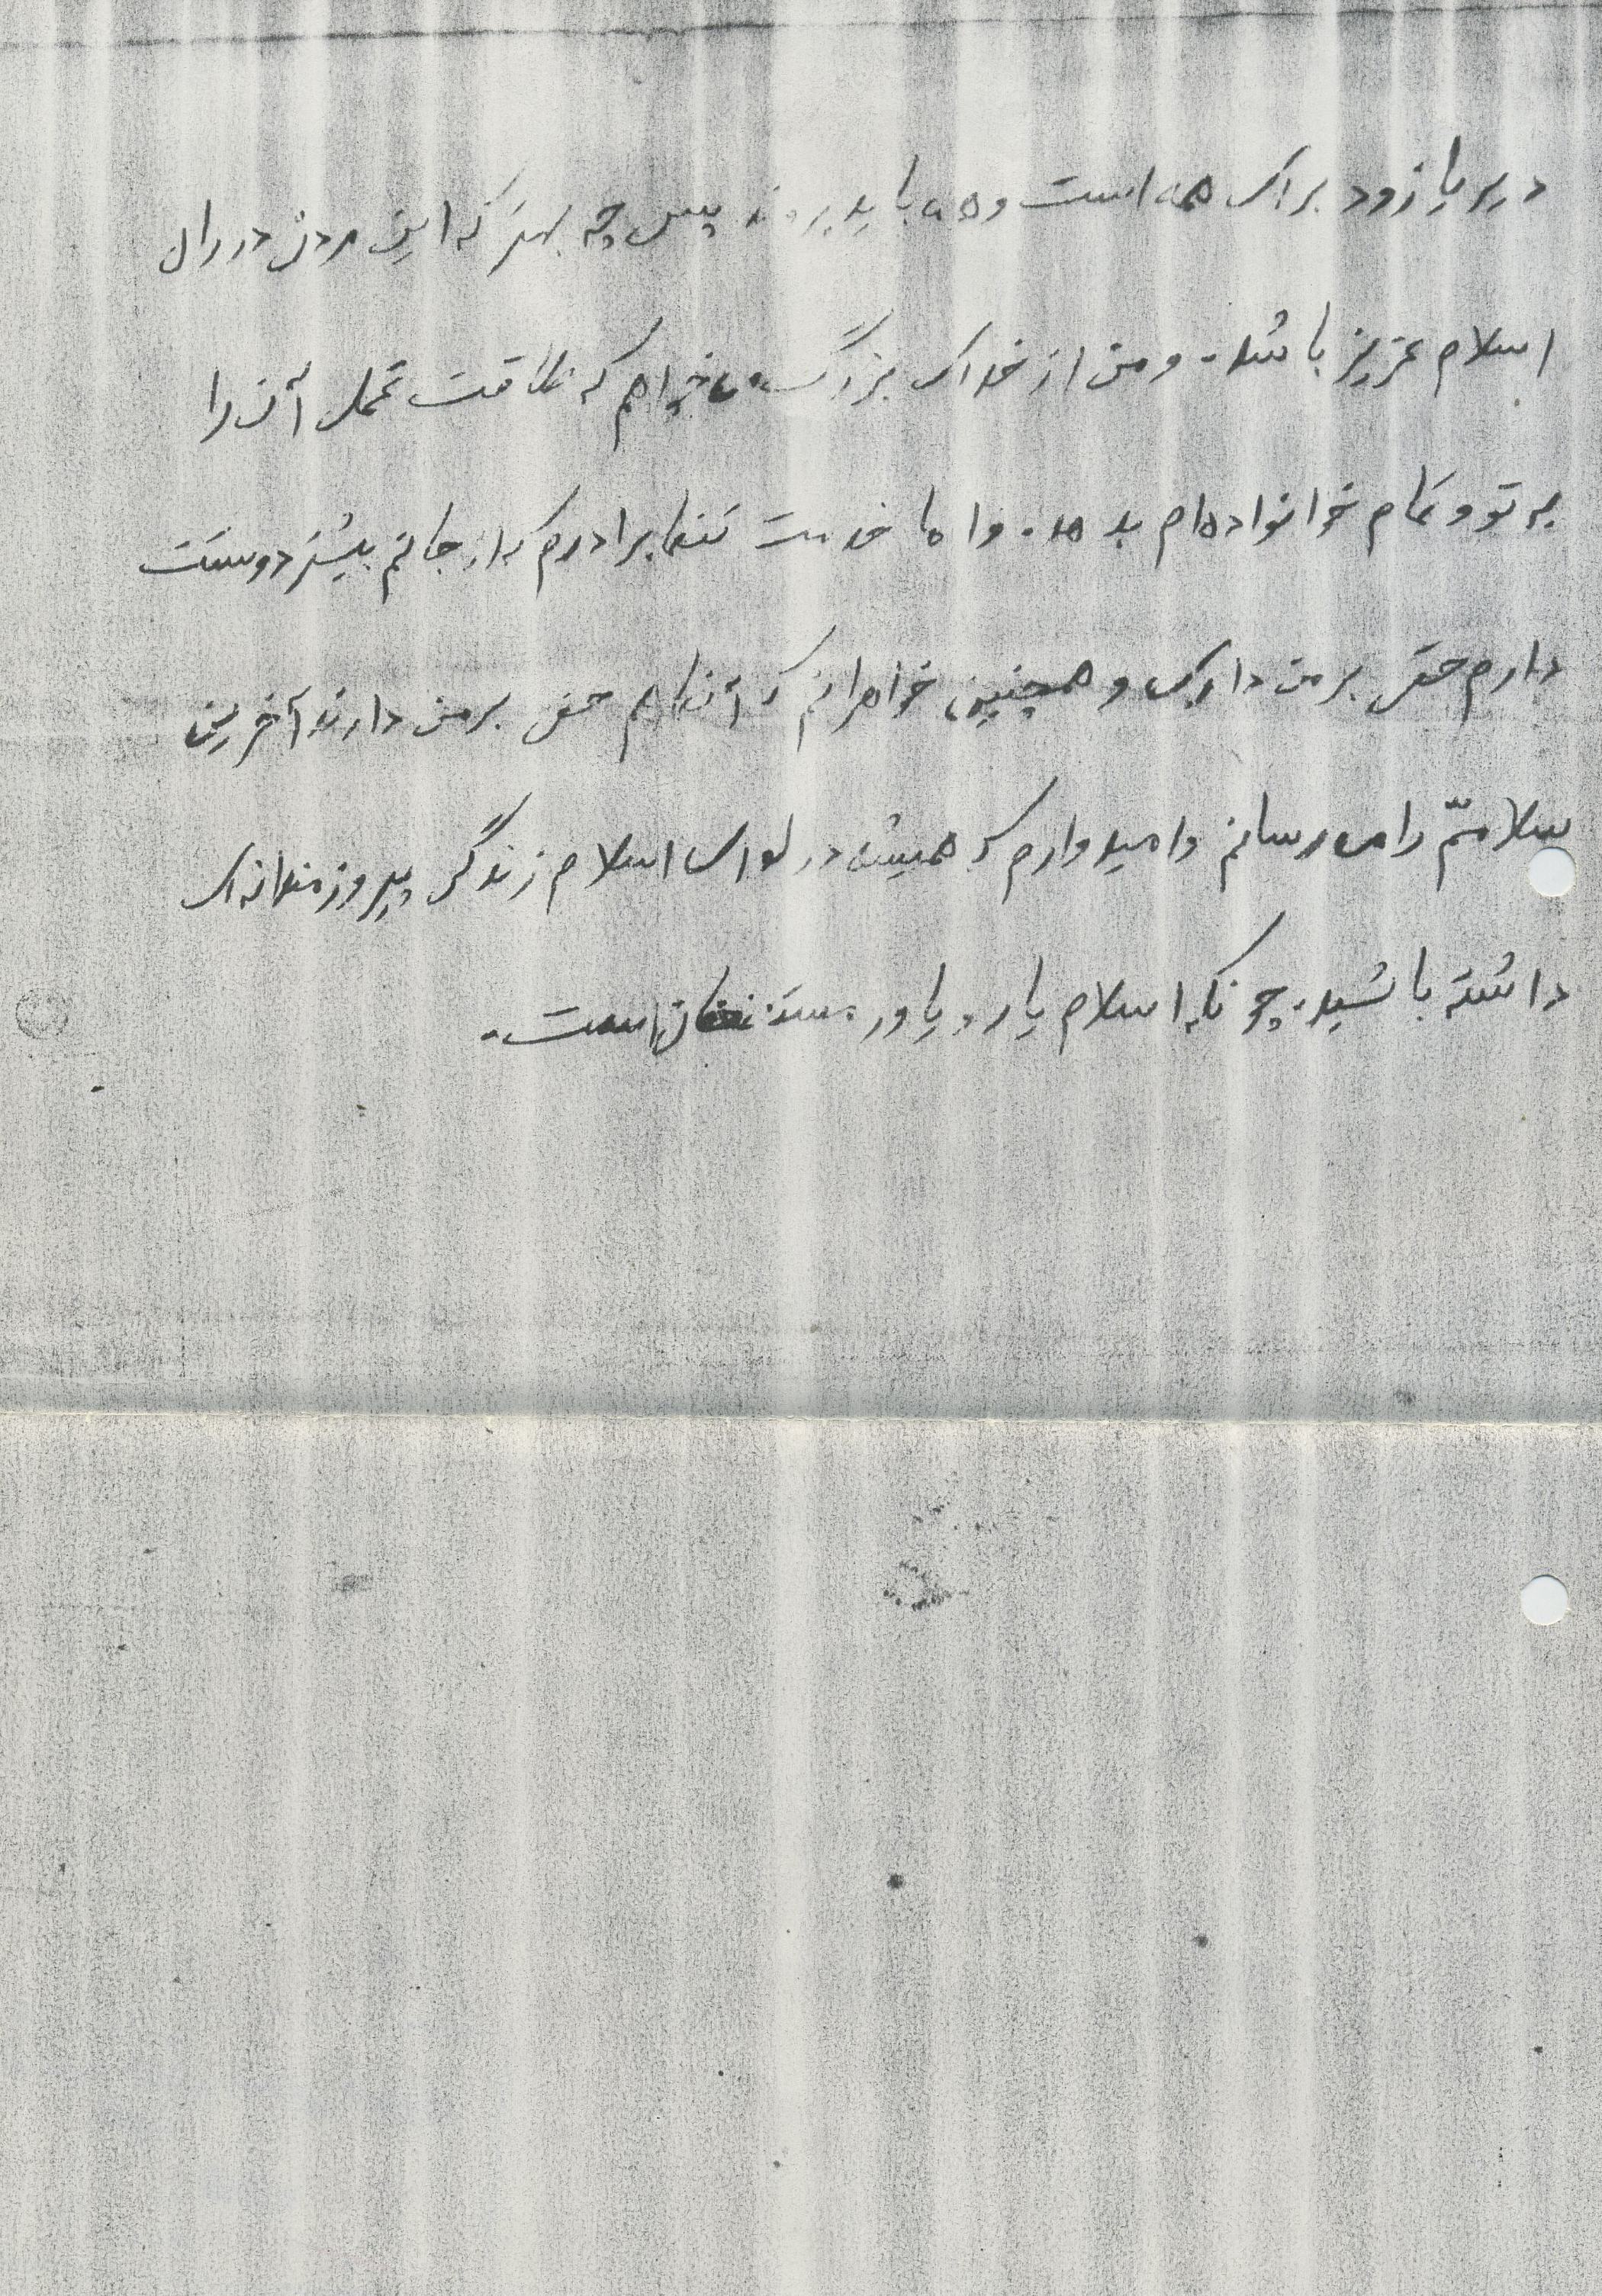 دیر یا زود برای همه است و همه باید بروند پس چه بهتر که این مردن در راه
اسلام عزیز باشد. و من از خدای بزرگ می‌خواهم که طاقت تحمل آن را
به تو و تمام خوانواده‌ام بدهد. و اما خدمت تنها برادرم که از جانم بیشتر دوستت
دارم حقی بر من داری و همچنین خواهرانم که آنها هم حقی بر من دارند آخرین
سلامتم را می‌رسانم و امیدوارم که همیشه در لوای اسلام زندگی پیروزمندانه‌ای
داشته باشید. چونکه اسلام یار و یاور مستضعفان است.